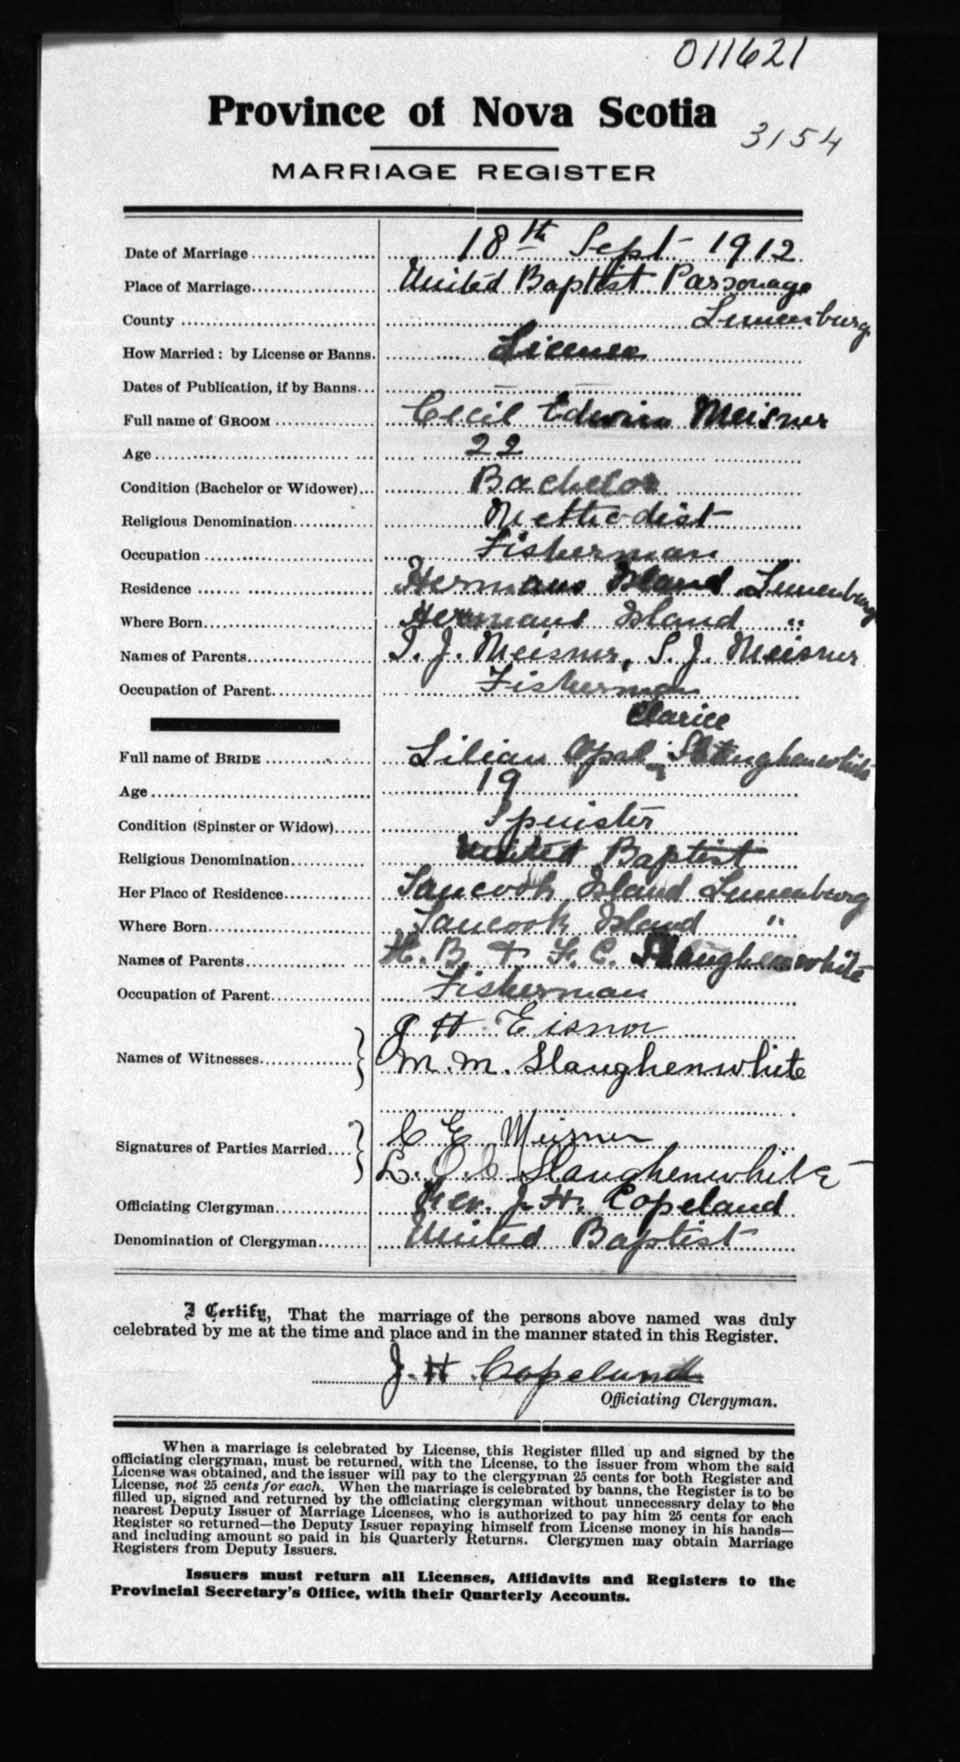 011621
Province of Nova Scotia
3154
MARRIAGE REGISTER
Date of Marriage 18th Sept 1912
Place of Marriage United Baptist Parsonage
County Lunenburg
How Married: by License or Banns. License
Dates of Publication, if by Banns
Full name of GROOM Cecil Edwin Meisner
Age 22
Condition (Bachelor or Widower) Bachelor
Religious Denomination Methodist
Occupation Fisherman
Residence Hermans Island Lunenburg
Where Born Hermans Island "
Names of Parents I. J. Meisner, S. J. Meisner
Occupation of Parent Fisherman
Clarice
Full name of BRIDE Lilian Opal Slaughenwhite
Age 19
Condition (Spinster or Widow) Spinster
Religious Denomination United Baptist
Her Place of Residence Tancook Island Lunenburg
Where Born Tancook Island "
Names of Parents H. B. & F. C. Slaughenwhite
Occupation of Parent Fisherman
J H Eisnor
Names of Witnesses M. M. Slaughenwhite
C E Meisner
Signatures of Parties Married L. O. C Slaughenwhite
Officiating Clergyman Rev. J. H. Copeland
Denomination of Clergyman United Baptist
I Certify, That the marriage of the persons above named was duly
celebrated by me at the time and place and in the manner stated in this Register.
J. H. Copeland
Officiating Clergyman.
When a marriage is celebrated by License, this Register filled up and signed by the
officiating clergyman, must be returned, with the License, to the issuer from whom the said
License was obtained, and the issuer will pay to the clergyman 25 cents for both Register and
License, not 25 cents for each. When the marriage is celebrated by banns, the Register is to be
filled up, signed and returned by the officiating clergyman without unnecessary delay to the
nearest Deputy Issuer of Marriage Licenses, who is authorized to pay him 25 cents for each
Register so returned—the Deputy Issuer repaying himself from License money in his hands—
and including amount so paid in his Quarterly Returns. Clergymen may obtain Marriage
Registers from Deputy Issuers.
Issuers must return all Licenses, Affidavits and Registers to the
Provincial Secretary's Office, with their Quarterly Accounts.